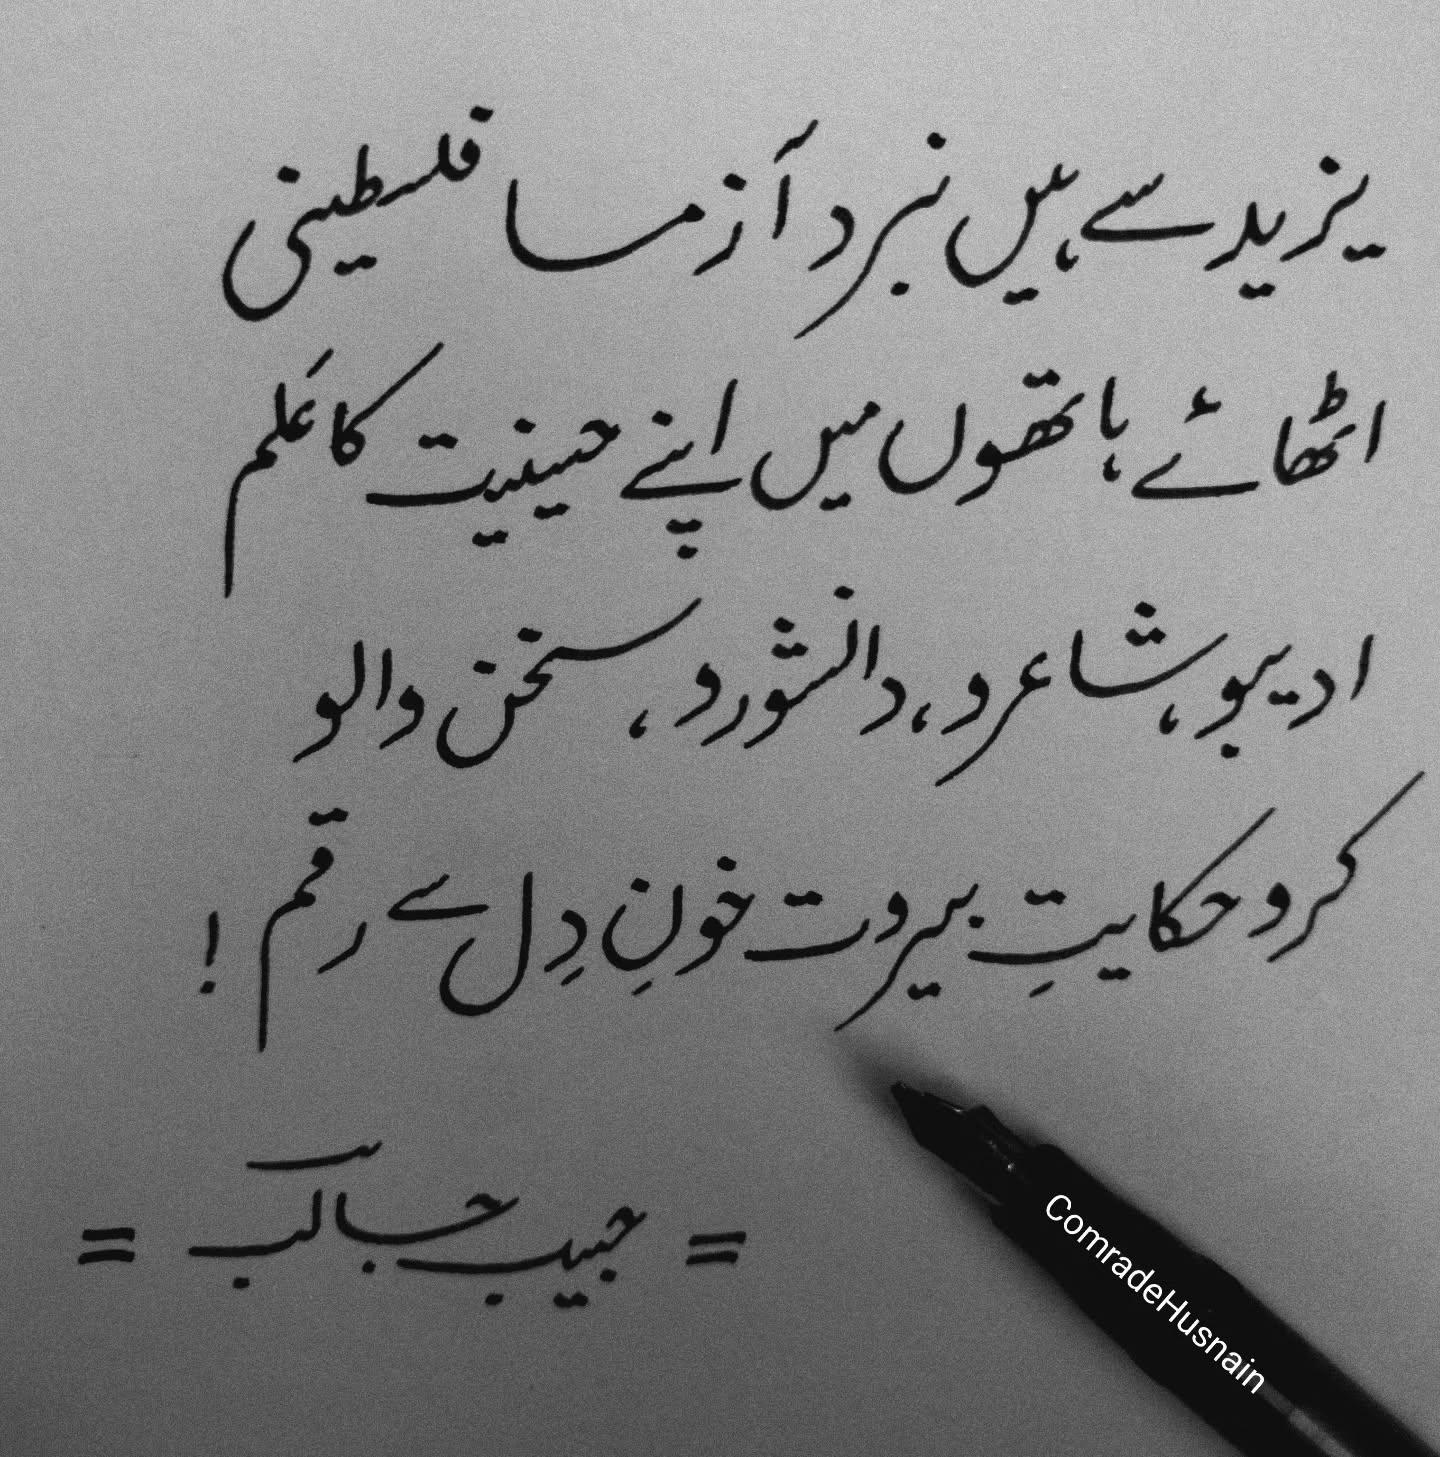 یزید سے ہیں نبرد آزما فلسطینی
اٹھائے ہاتھوں میں اپنے حسینیت کا عَلم
ادیبو، شاعرو، دانشورو، سخن والو
کرو حکایتِ بیروت خونِ دِل سے رقم !
= حبیب جالبؔ =
ComradeHusnain